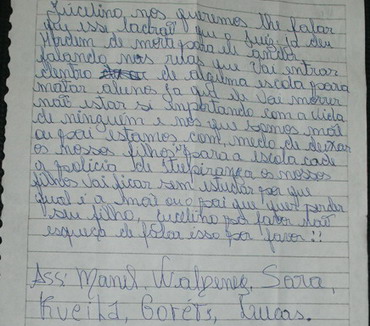 Jucelino, nos queremos lhe falar
que esse ladrão que o Juiz já deu
ordem de morte para ele anda
falando nas ruas que vai entrar
dentro de alguma escola para
matar alunos já que ele vai morrer
não estar si importando com a vida
de ninguém e nos que somos mãe
ou pai estamos com medo de deixar
os nossos filhos para a escola cade
a policia de Itupiranga os nossos
filhos vai ficar sem estudar por que
qual é a mãe ou pai que quer perder
seu filho, Jucelino por favor não
esqueça de falar isso por favor!!
Ass: Manel, Walpenes, Sara,
Kveila, Goréts, Lucas.